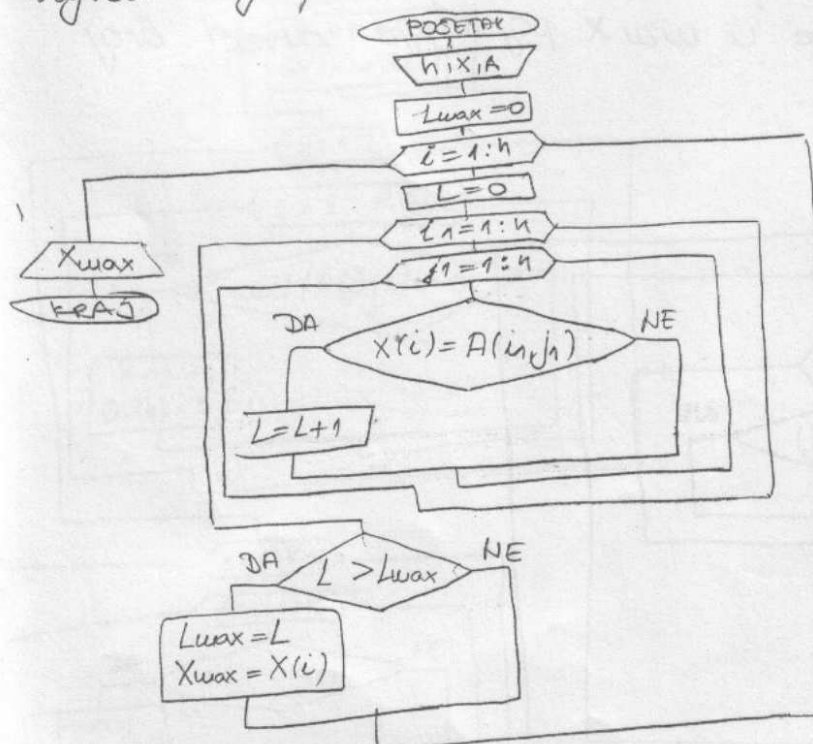 POČETAK
n, X, A
Lmax = 0
i = 1 : n
L = 0
i1 = 1 : n
j1 = 1 : n
Xmax
KRAJ
DA
NE
X(i) = A(i1, j1)
L = L + 1
DA
NE
L > Lmax
Lmax = L
Xmax = X(i)